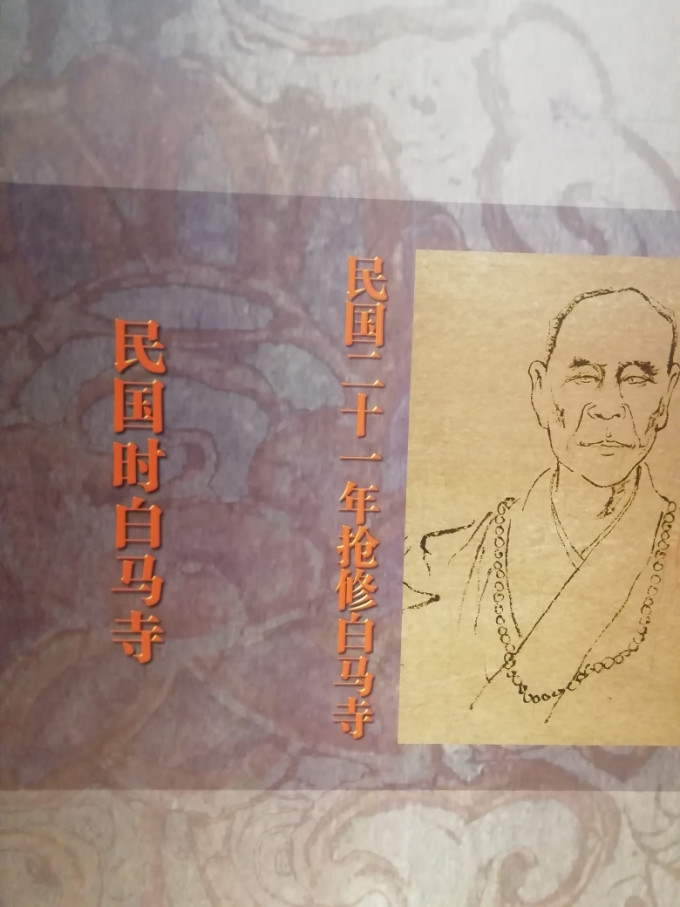 民国二十一年抢修白马寺
民国时白马寺